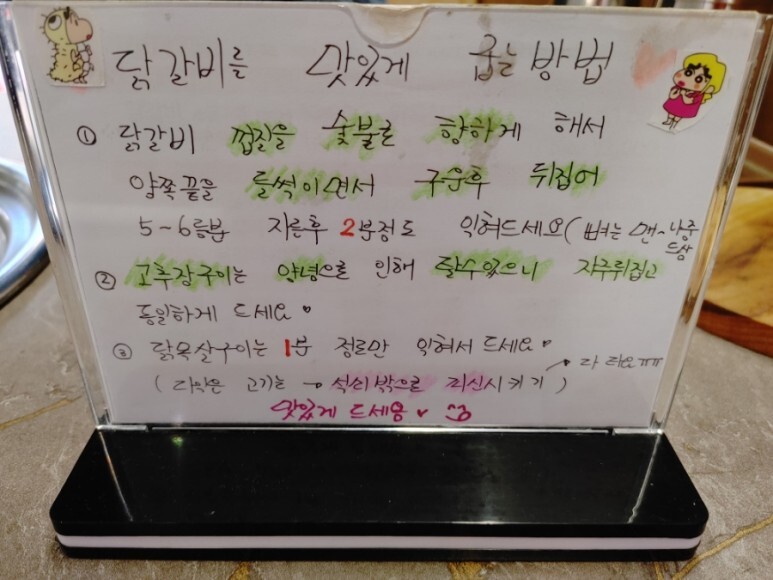 닭갈비를 맛있게 굽는 방법
① 닭갈비 껍질을 숯불로 향하게 해서
양쪽끝을 들썩이면서 구운후 뒤집어
5~6등분 자른후 2분정도 익혀드세요 (뼈는 맨~나중
드삼
② 고추장구이는 양념으로 인해 탈수있으니 자주뒤집고
동일하게 드세요♥
③ 닭목살구이는 1분 정도만 익혀서 드세요♥
(다익은 고기는 → 석쇠밖으로 피신시키기) → 다 타요ㅠㅠ
맛있게 드세용♥ ^^